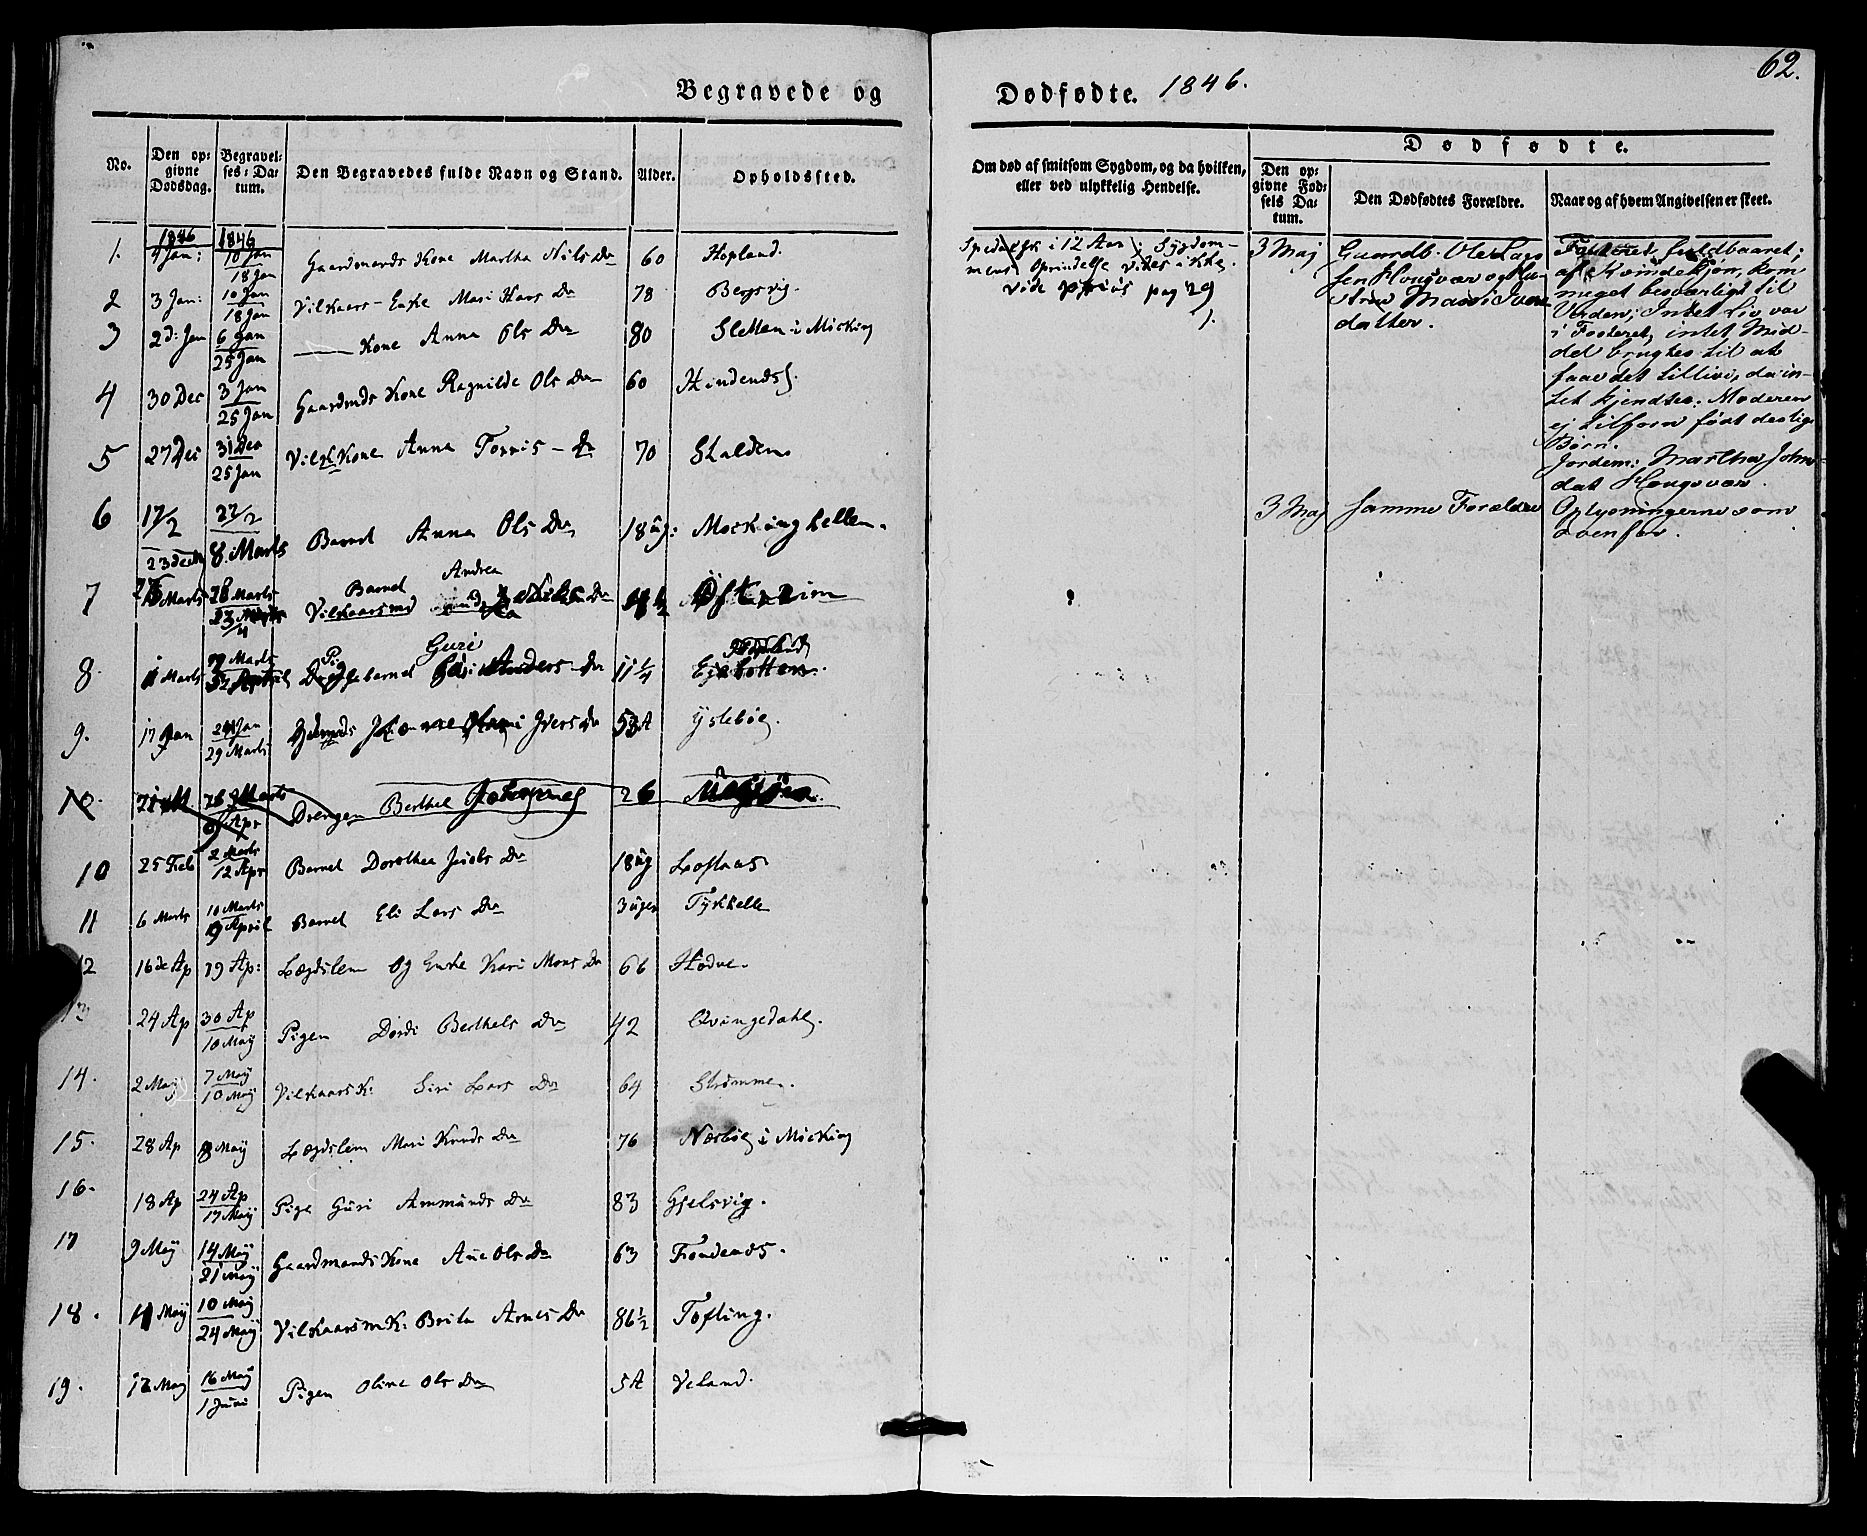 62.
Begravede og Dødfødte. 1846.
No. Den opgivne Dødsdag. Begravelses-Datum. Den Begravedes fulde Navn og Stand. Alder. Opholdssted.
Om død af smitsom Sygdom, og da hvilken, eller ved ulykkelig Hendelse.
Dødfødte.
Den opgivne Fødsels Datum. Den Dødfødtes Forældre. Naar og af hvem Angivelsen er skeet.
1846 1846
1. 4 Jan: 10 Jan 18 Jan Gaardmands Kone Martha Nils Dr 60 Hopland.
2 3 Jan: 10 Jan 18 Jan Vilkaars-Enke Mari Hans Dr 78 Bergsvig.
3 2d: Jan 6 Jan 25 Jan —— Kone Anna Ols Dr 80 Sletten i Micking
4 30 Dec 3 Jan 25 Jan Gaardmds Kone Ragnilde Ols Dr 60 Hindenes.
5 27 Dec 31 Dec 25 Jan Vilk Kone Anna Tonnis-Dr 70 Skalden
6 17/2 22/2 8. Marts Barnet Anna Ols Dr 18 ug: Mockinghellen.
23 dec
7 Marts Marts Barnet Andrea Nils Dr
Vilkaarsmd
8. 11 Marts Marts Pig Guri Anders-Dr 11 1/4 Hopland
9. 17 Jan 24 Jan 29 Marts Ivers Dr 53 A Ystebøe
10. Marts Apr Drengen Berthel Johannes 26
10 25 Feb 2 Marts 12 Apr Barnet Dorothea Jacobs Dr 18 ug Loftaas
11 6 Marts 10 Marts 19 April Barnet Eli Lars Dr 3 uger Tykhelle
12 16de Ap 19 Ap: Lægdslem og Enke Kari Mons Dr 66 Hodne.
13 24 Ap 30 Ap 10 Maij Pigen Dordi Berthels Dr 42 Qvingedahl.
14. 2 Maij 7 Maij 10 Maij Vilkaars K: Siri Lars Dr 64 Strømme.
15. 28 Ap 8 Maij Lægdslem Mari Knuds Dr 76 Næsbøe i Micking
16. 18 Ap 24 Ap 17 Maij Pige Guri Ammunds Dr 83 Gjelsvig.
17 9 Maij 14 Maij 21 Maij Gaardmands Kone Ane Ols Dr 63 Fondenes.
18. 11 Maij 10 Maij 24 Maij Vilkaarsm K: Brita Arnes Dr 86 1/2 Tofting.
19. 12 Maij 16 Maij 1 Juni Pigen Oline Ols Dr 5 A Veland.
Spedalsk i 12 Aar; Sygdom-
mens Oprindelse vides ikke.
vide pag 29
3 Maj Gaardb. Ole Lars
sen Hougsvær og Hu-
stru Mari Ivers
datter.
Fosteret fuldbaaret;
af Kvindekjøn, kom
meget besværligt til
Verden; Intet Liv var
i Fosteret, intet Mid-
del brugtes til at
faae det tillive, da in-
tet kjendtes. Moderen
ej tilforn født deslige
Børn.
Jordem: Martha Johns-
dat Hougsvær.
3 Maj Samme Forældre Oplysningerne som
ovenfor.